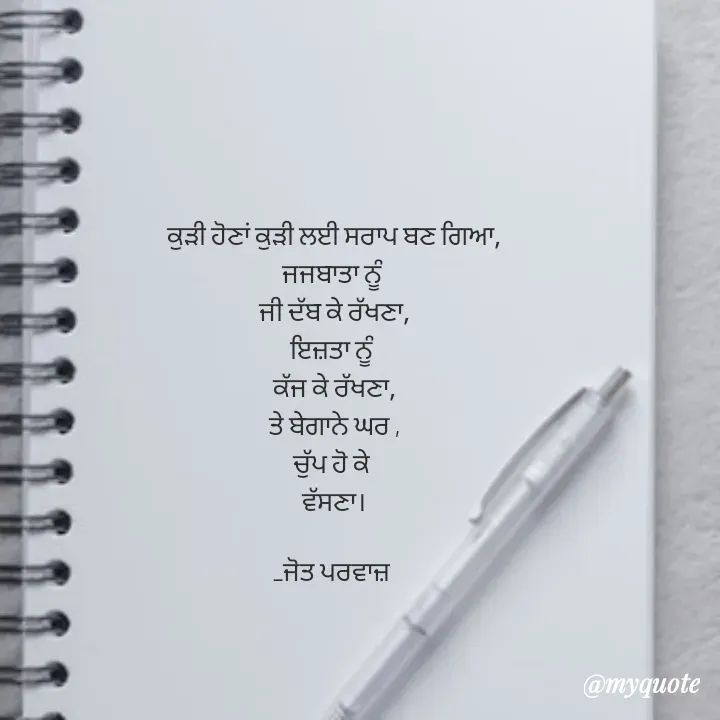 ਕੁੜੀ ਹੋਣਾਂ ਕੁੜੀ ਲਈ ਸਰਾਪ ਬਣ ਗਿਆ,
ਜਜਬਾਤਾ ਨੂੰ
ਜੀ ਦੱਬ ਕੇ ਰੱਖਣਾ,
ਇਜ਼ਤਾ ਨੂੰ
ਕੱਜ ਕੇ ਰੱਖਣਾ,
ਤੇ ਬੇਗਾਨੇ ਘਰ ,
ਚੁੱਪ ਹੋ ਕੇ
ਵੱਸਣਾ।
_ਜੋਤ ਪਰਵਾਜ਼
@myquote